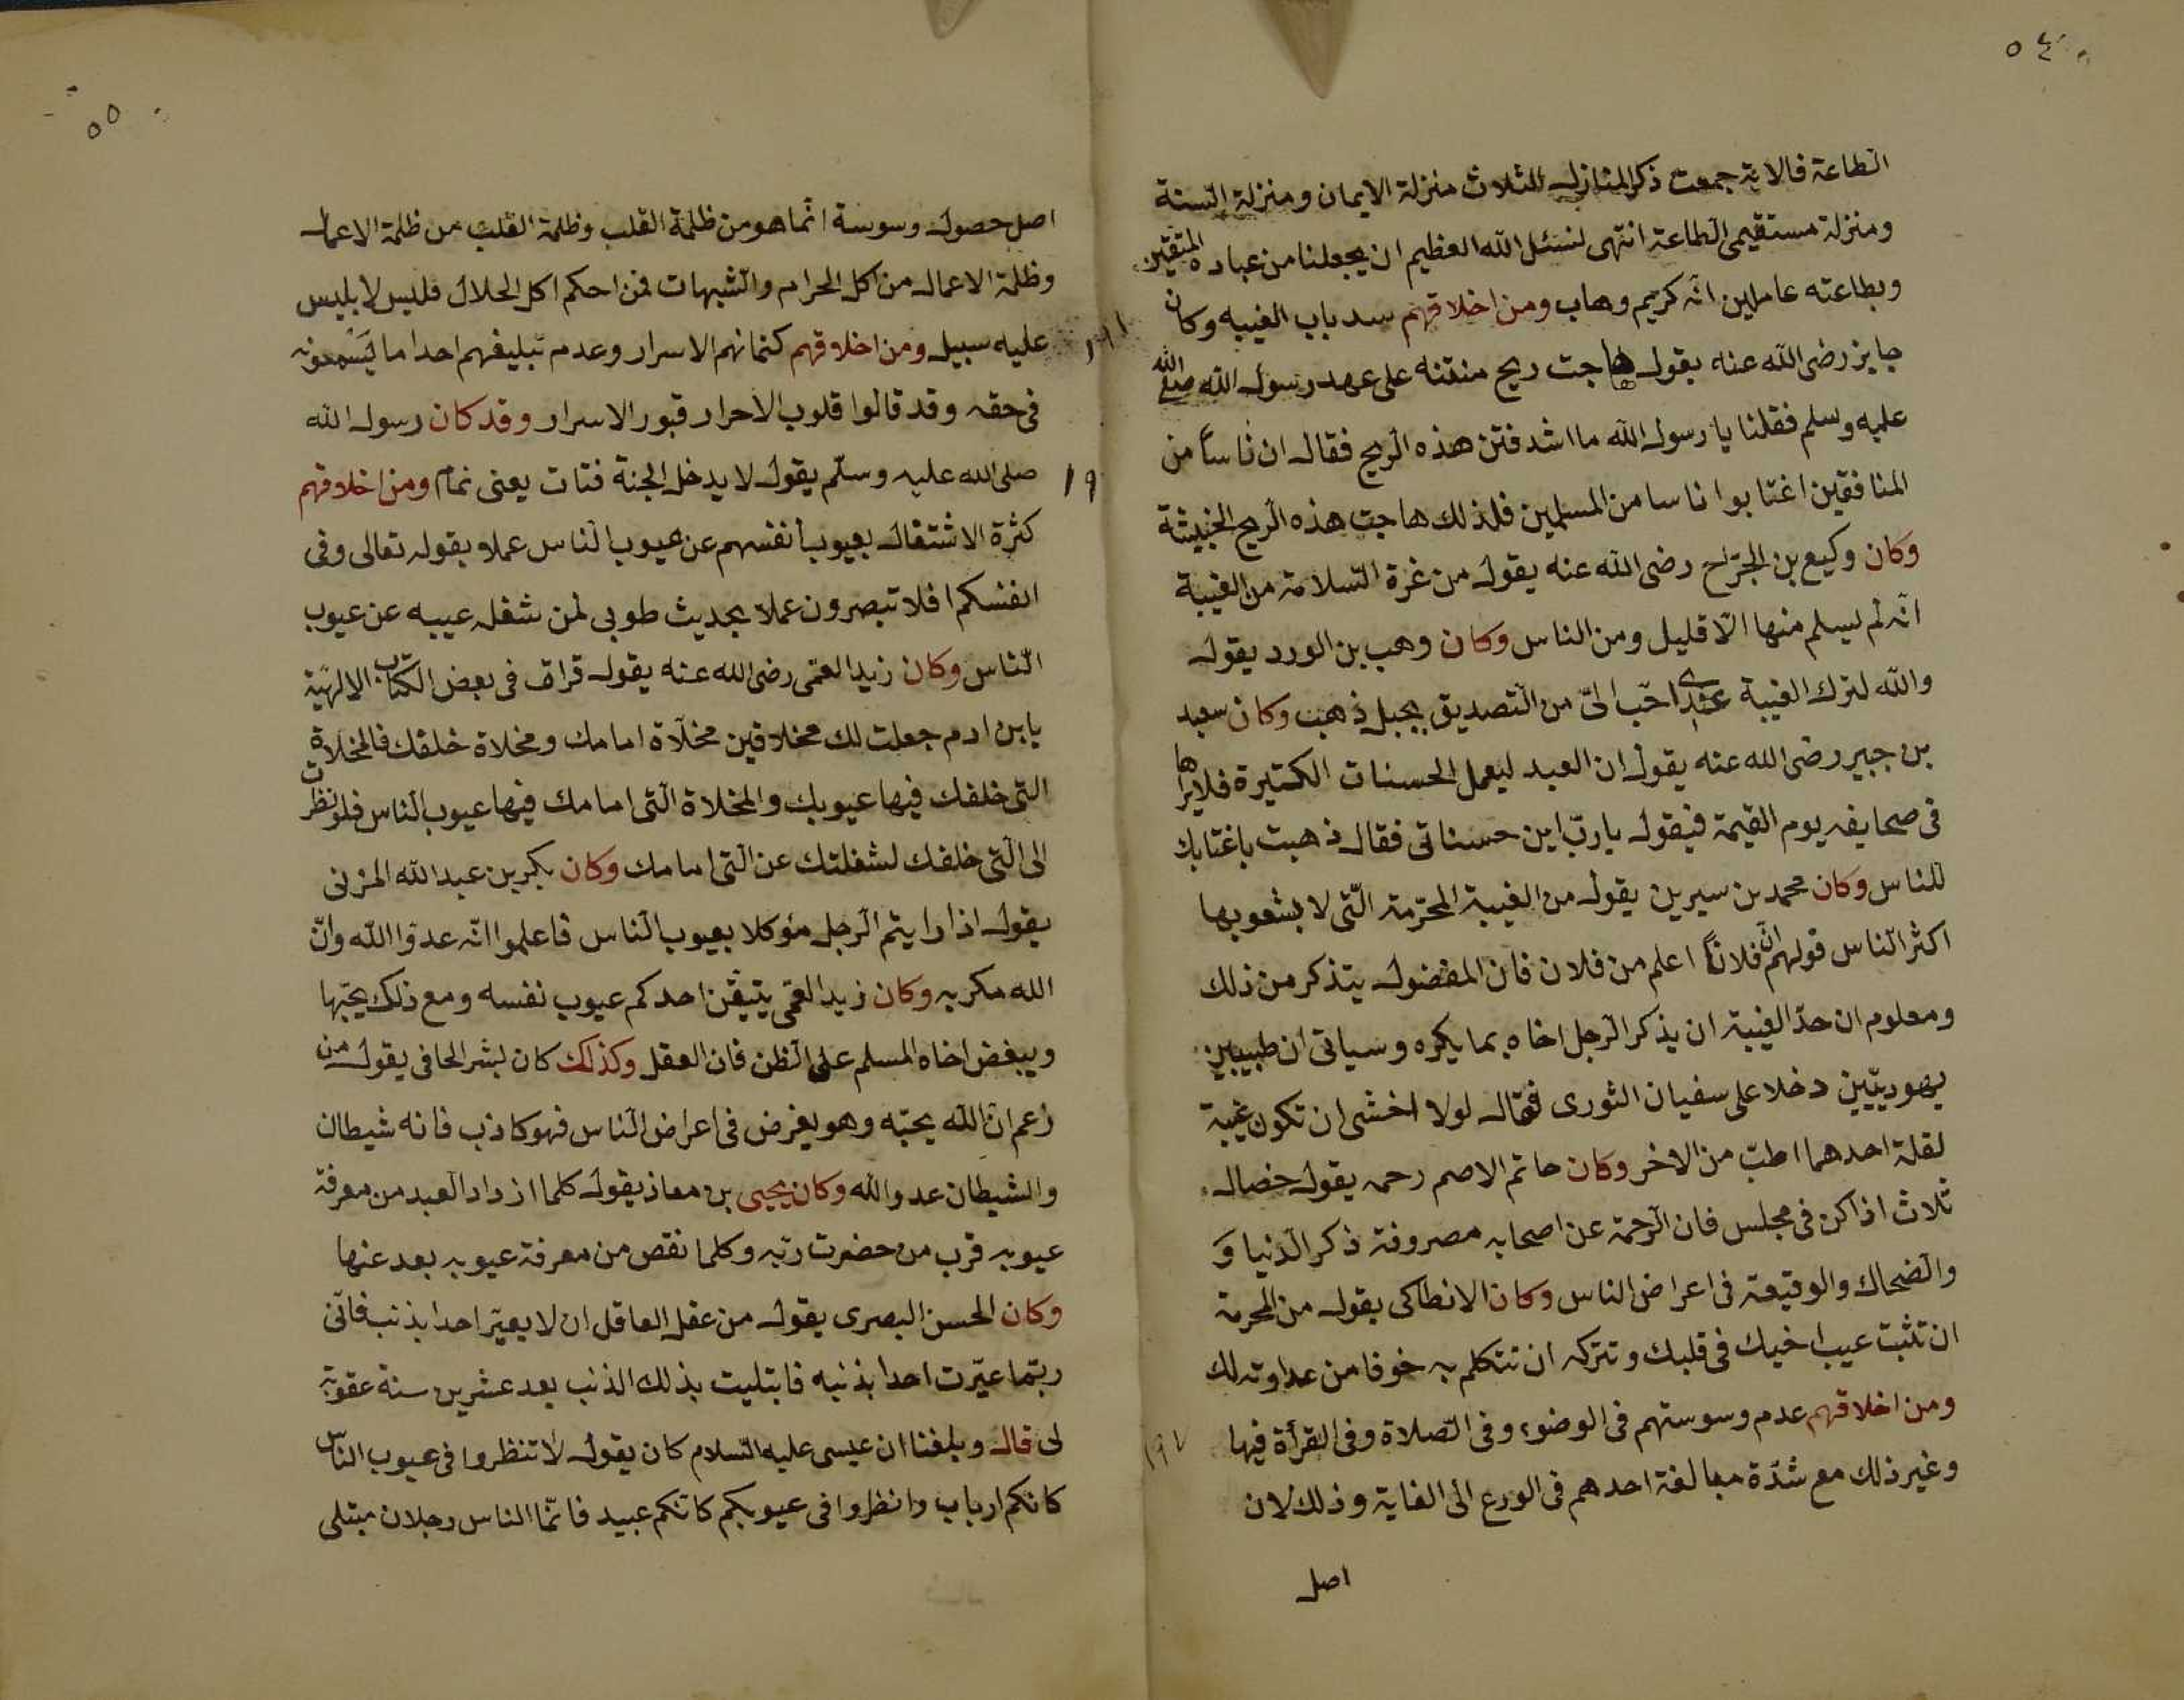 ٥٤
الطاعة فالاية جمعت ذكر المنازل الثلاث منزلة الايمان ومنزلة السنة
ومنزلة مستقيمى الطاعة انتهى لنسئل الله العظيم ان يجعلنا من عباده المتقين
وبطاعته عاملين انه كريم وهاب ومن اخلاقهم سد باب الغيبه وكان
جابر رضى الله عنه يقول هاجت ريح منتنه على عهد رسول الله صلى الله
عليه وسلم فقلنا يا رسول الله ما اشد فتن هذه الريح فقال ان ناساً من
المنافقين اغتابوا ناسا من المسلمين فلذلك هاجت هذه الريح الخبيثة
وكان وكيع بن الجرّاح رضى الله عنه يقول من غرة السّلامة من الغيبة
انه لم يسلم منها الّا قليل ومن الناس وكان وهب بن الورد يقول
والله لترك الغيبة عندى احّب الىّ من التصديق بجبل ذهب وكان سعيد
بن جبير رضى الله عنه يقول ان العبد ليعمل الحسنات الكثيرة فلا يراها
فى صحايفه يوم القيمة فيقول يا ربّ اين حسناتى فقال ذهبت باغتابك
للناس وكان محمد بن سيرين يقول من الغيبة المحرّمة الّتى لا يشعو بها
اكثر الناس قولهم ان فلاناً اعلم من فلان فان المفضول يتذكر من ذلك
ومعلوم ان حدّ الغيبة ان يذكر الرجل اخاه بما يكره وسياتى ان طبيبين
يهوديّيين دخلا على سفيان الثورى فقال لولا اخشى ان تكون غيبة
لقلة احدهما اطبّ من الاخر وكان حاتم الاصم رحمه يقول خصال
ثلاث اذا كن فى مجلس فان الرّحمة عن اصحابه مصروفة ذكر الدّنيا وَ
والضحاك والوقيعة فى اعراض الناس وكان الانطاكى يقول من المحرمة
ان تثبت عيب اخيك فى قلبك وتتركه ان تتكلم به خوفا من عداوته لك
ومن اخلاقهم عدم وسوستهم فى الوضوء وفى الصّلاة وفى القرأة فيها
وغير ذلك مع شدّة مبالغة احدهم فى الورع الى الغاية وذلك لان
اصل
٥٥
اصل حصول وسوسة انما هو من ظلمة القلب وظلمة القلب من ظلمة الاعمال
وظلمة الاعمال من اكل الحرام والشبهات فمن احكم اكل الحلال فليس لابليس
عليه سبيل ومن اخلاقهم كتمانهم الاسرار وعدم تبليغهم احدا ما يَسْمعونه
فى حقه وقد قالوا قلوب الاحرار قبور الاسرار وقد كان رسول الله
صلى الله عليه وسلّم يقول لا يدخل الجنة فتات يعنى نمام ومن اخلاقهم
كثرة الاشتغال بعيوب أنفسهم عن عيوب الناس عملا بقوله تعالى وفى
انفسكم افلا تبصرون عملا بحديث طوبى لمن شغله عيبه عن عيوب
النّاس وكان زيد العمّى رضى الله عنه يقول قراق فى بعض الكتاب الالهيّة
يابن ادم جعلت لك مخلاقين مخلّاة امامك ومخلاة خلفك فالمخلاة
التى خلفك فيها عيوبك والمخلاة الّتى امامك فيها عيوب الناس فلو نظرت
الى الّتى خلفك لشغلتك عن الّتى امامك وكان بكر بن عبد الله المزنى
يقول اذا رايتم الرجل مؤكلا بعيوب النّاس فاعلموا انّه عدوّا الله وانّ
الله مكر به وكان زيد العمّى يتيقّن احدكم عيوب نفسه ومع ذلك يحبّها
ويبغض اخاه المسلم على الظن فان العقل وكذلك كان بشر الحافى يقول من
زعم ان الله يحبّه وهو يغرض فى اعراض النّاس فهو كاذب فانه شيطان
والشيطان عدو الله وكان يحيى بن معاذ يقول كلما ازداد العبد من معرفة
عيوبه قرب من حضرت ربّه وكلما نقص من معرفة عيوبه بعد عنها
وكان الحسن البصرى يقول من عقل العاقل ان لا يعيّر احدا بذنب فانّى
ربّما عيّرت احدا بذنبه فابتليت بذلك الذنب بعد عشرين سنة عقوبة
لى قال وبلغنا ان عيسى عليه السّلام كان يقول لا تنظروا فى عيوب الناس
كانكم ارباب وانظروا فى عيوبكم كانكم عبيد فانّما الناس رجلان مبتلى